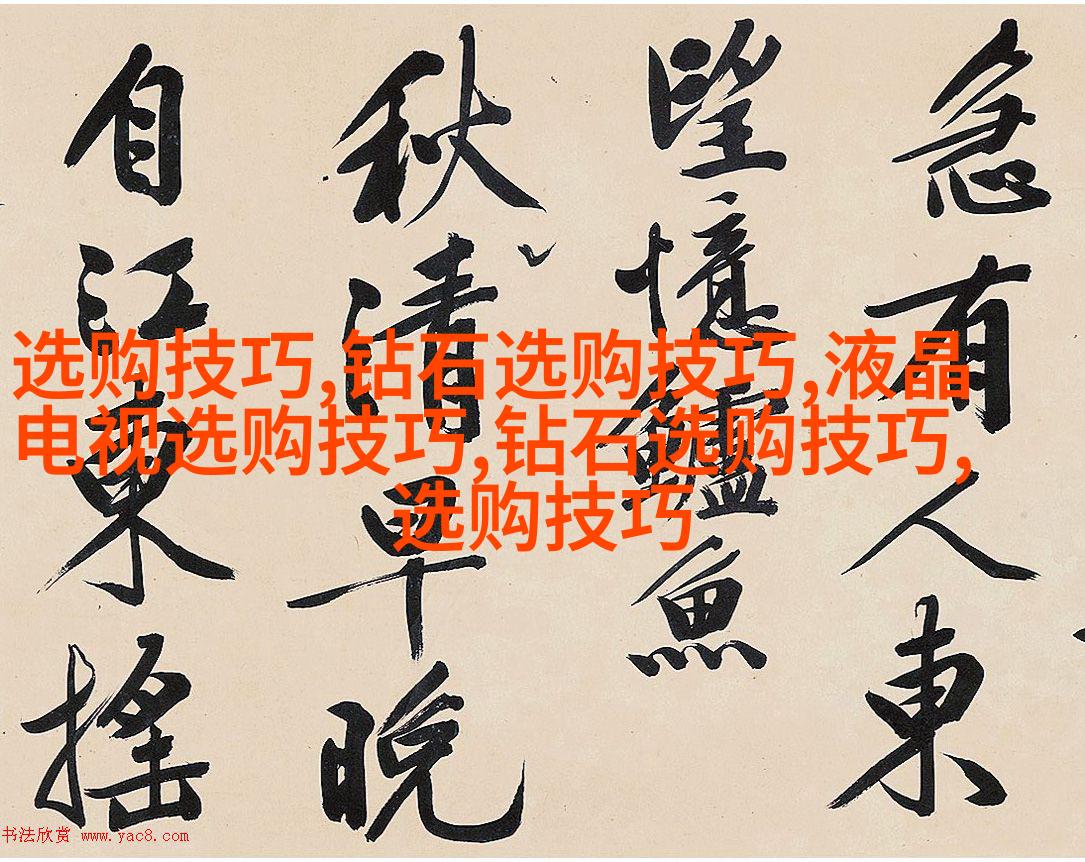 急有人東
望憶鱸魚
秋清早晚
自江東搖
选购技巧,钻石选购技巧,液晶
电视选购技巧,钻石选购技巧,
选购技巧
书法欣赏 www.yac8.com